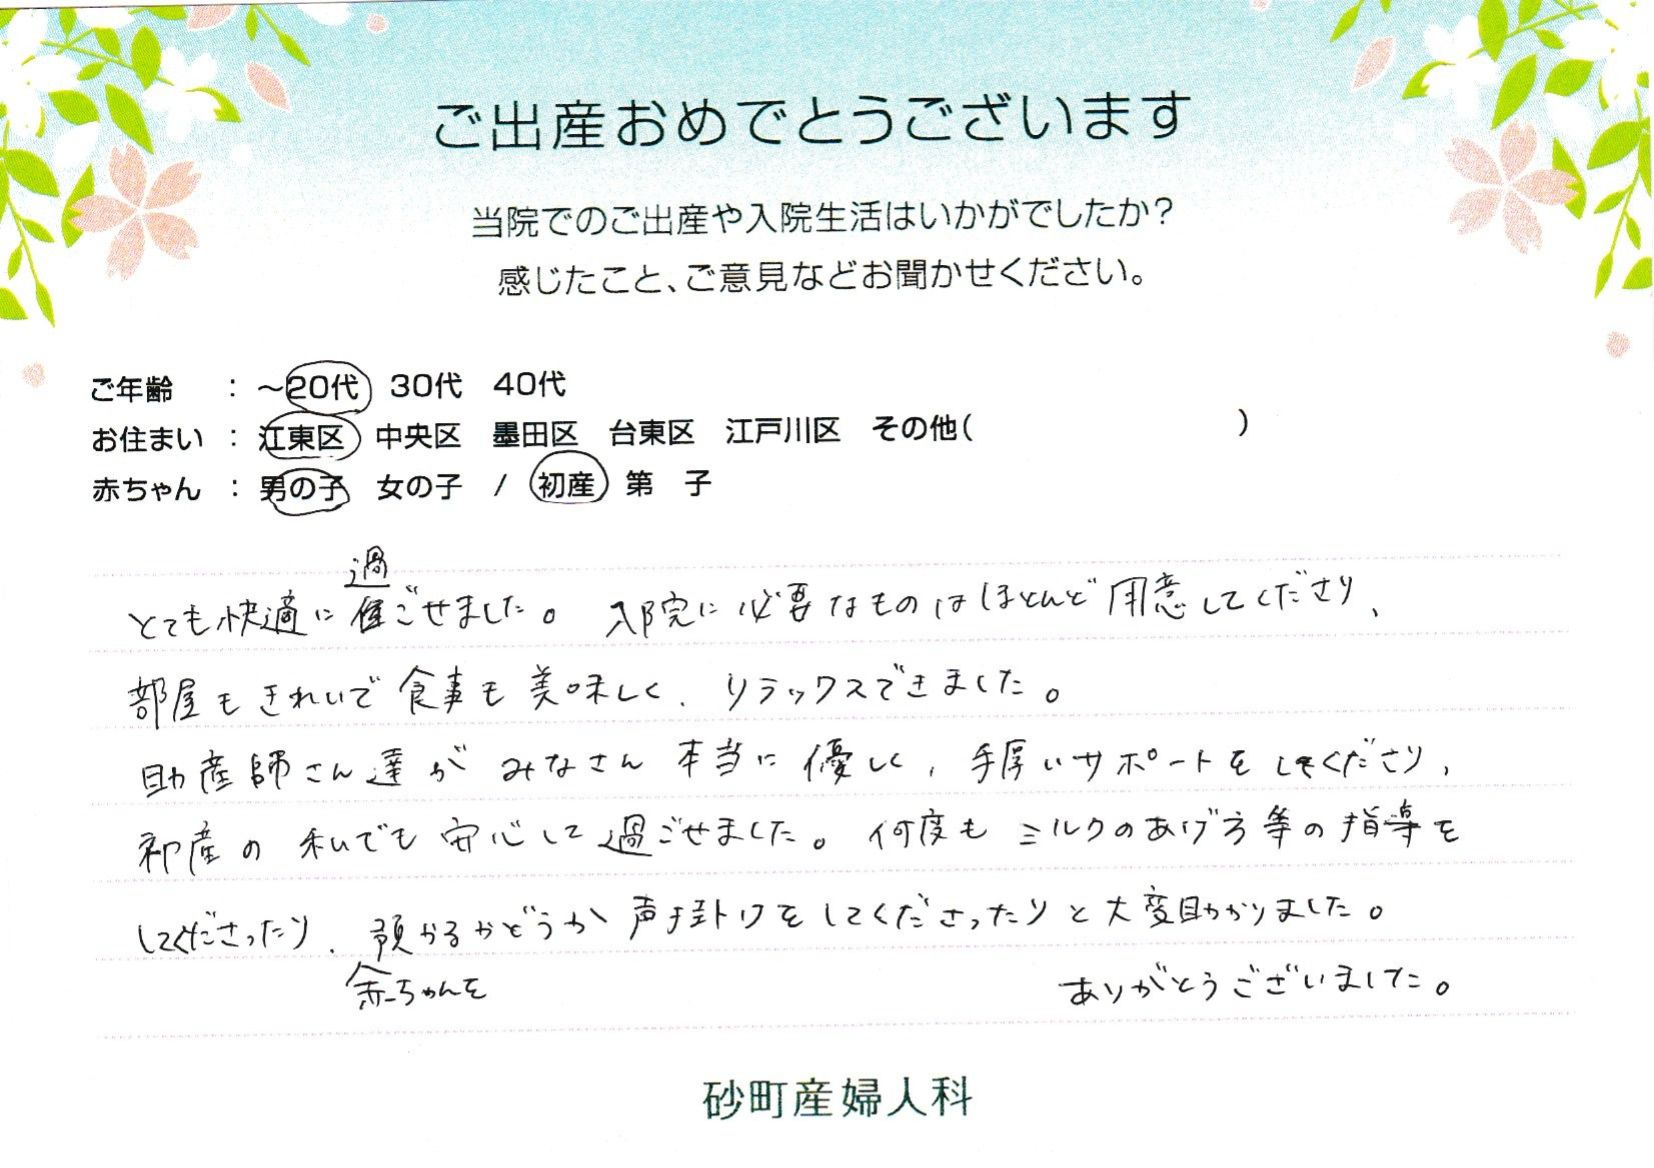 ご出産おめでとうございます
当院でのご出産や入院生活はいかがでしたか?
感じたこと、ご意見などお聞かせください。
ご年齢 : ～20代 30代 40代
お住まい : 江東区 中央区 墨田区 台東区 江戸川区 その他( )
赤ちゃん : 男の子 女の子 / 初産 第 子
過
とても快適に ごせました。 入院に必要なものはほとんど用意してくださり、
部屋もきれいで食事も美味しく、リラックスできました。
助産師さん達がみなさん本当に優しく、手厚いサポートをしてくださり、
初産の私でも安心して過ごせました。何度もミルクのあげ方等の指導を
してくださったり、預かるかどうか声掛けをしてくださったりと大変助かりました。
赤ちゃんを
ありがとうございました。
砂町産婦人科